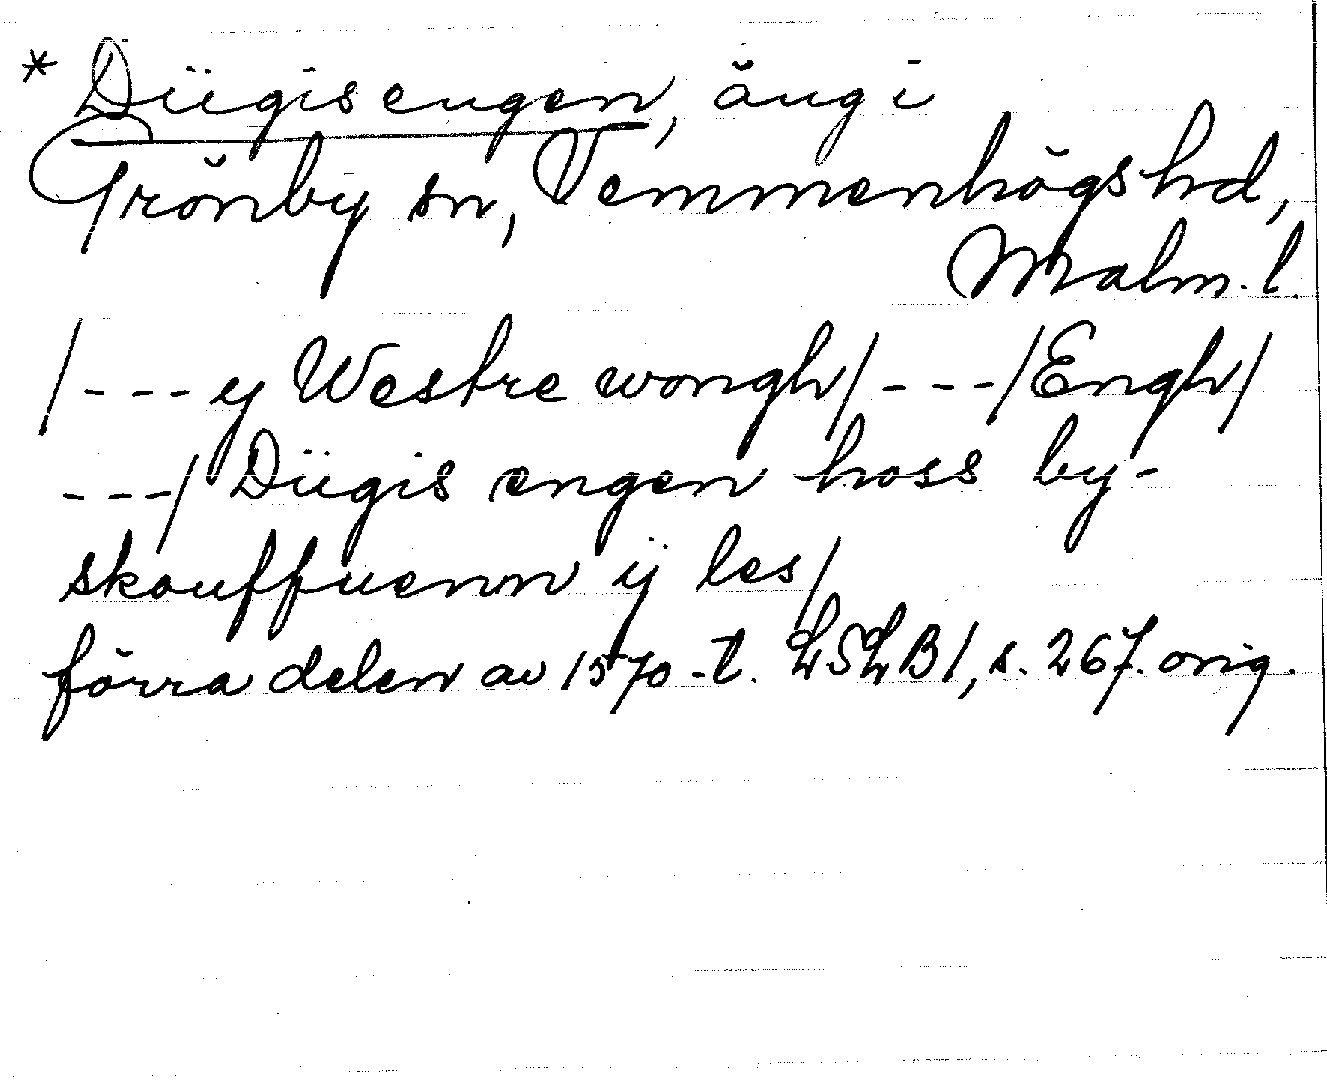 * Dügisengen, äng i
Grönby sn, Vemmenhögs hd,
Malm. l.
/--- y Westre wongh/ ---/Engh/
---/ Dügis engen hoss by-
skouffuenn ÿ les/
förra delen av 1570-t. LSLB 1, s. 267. orig.